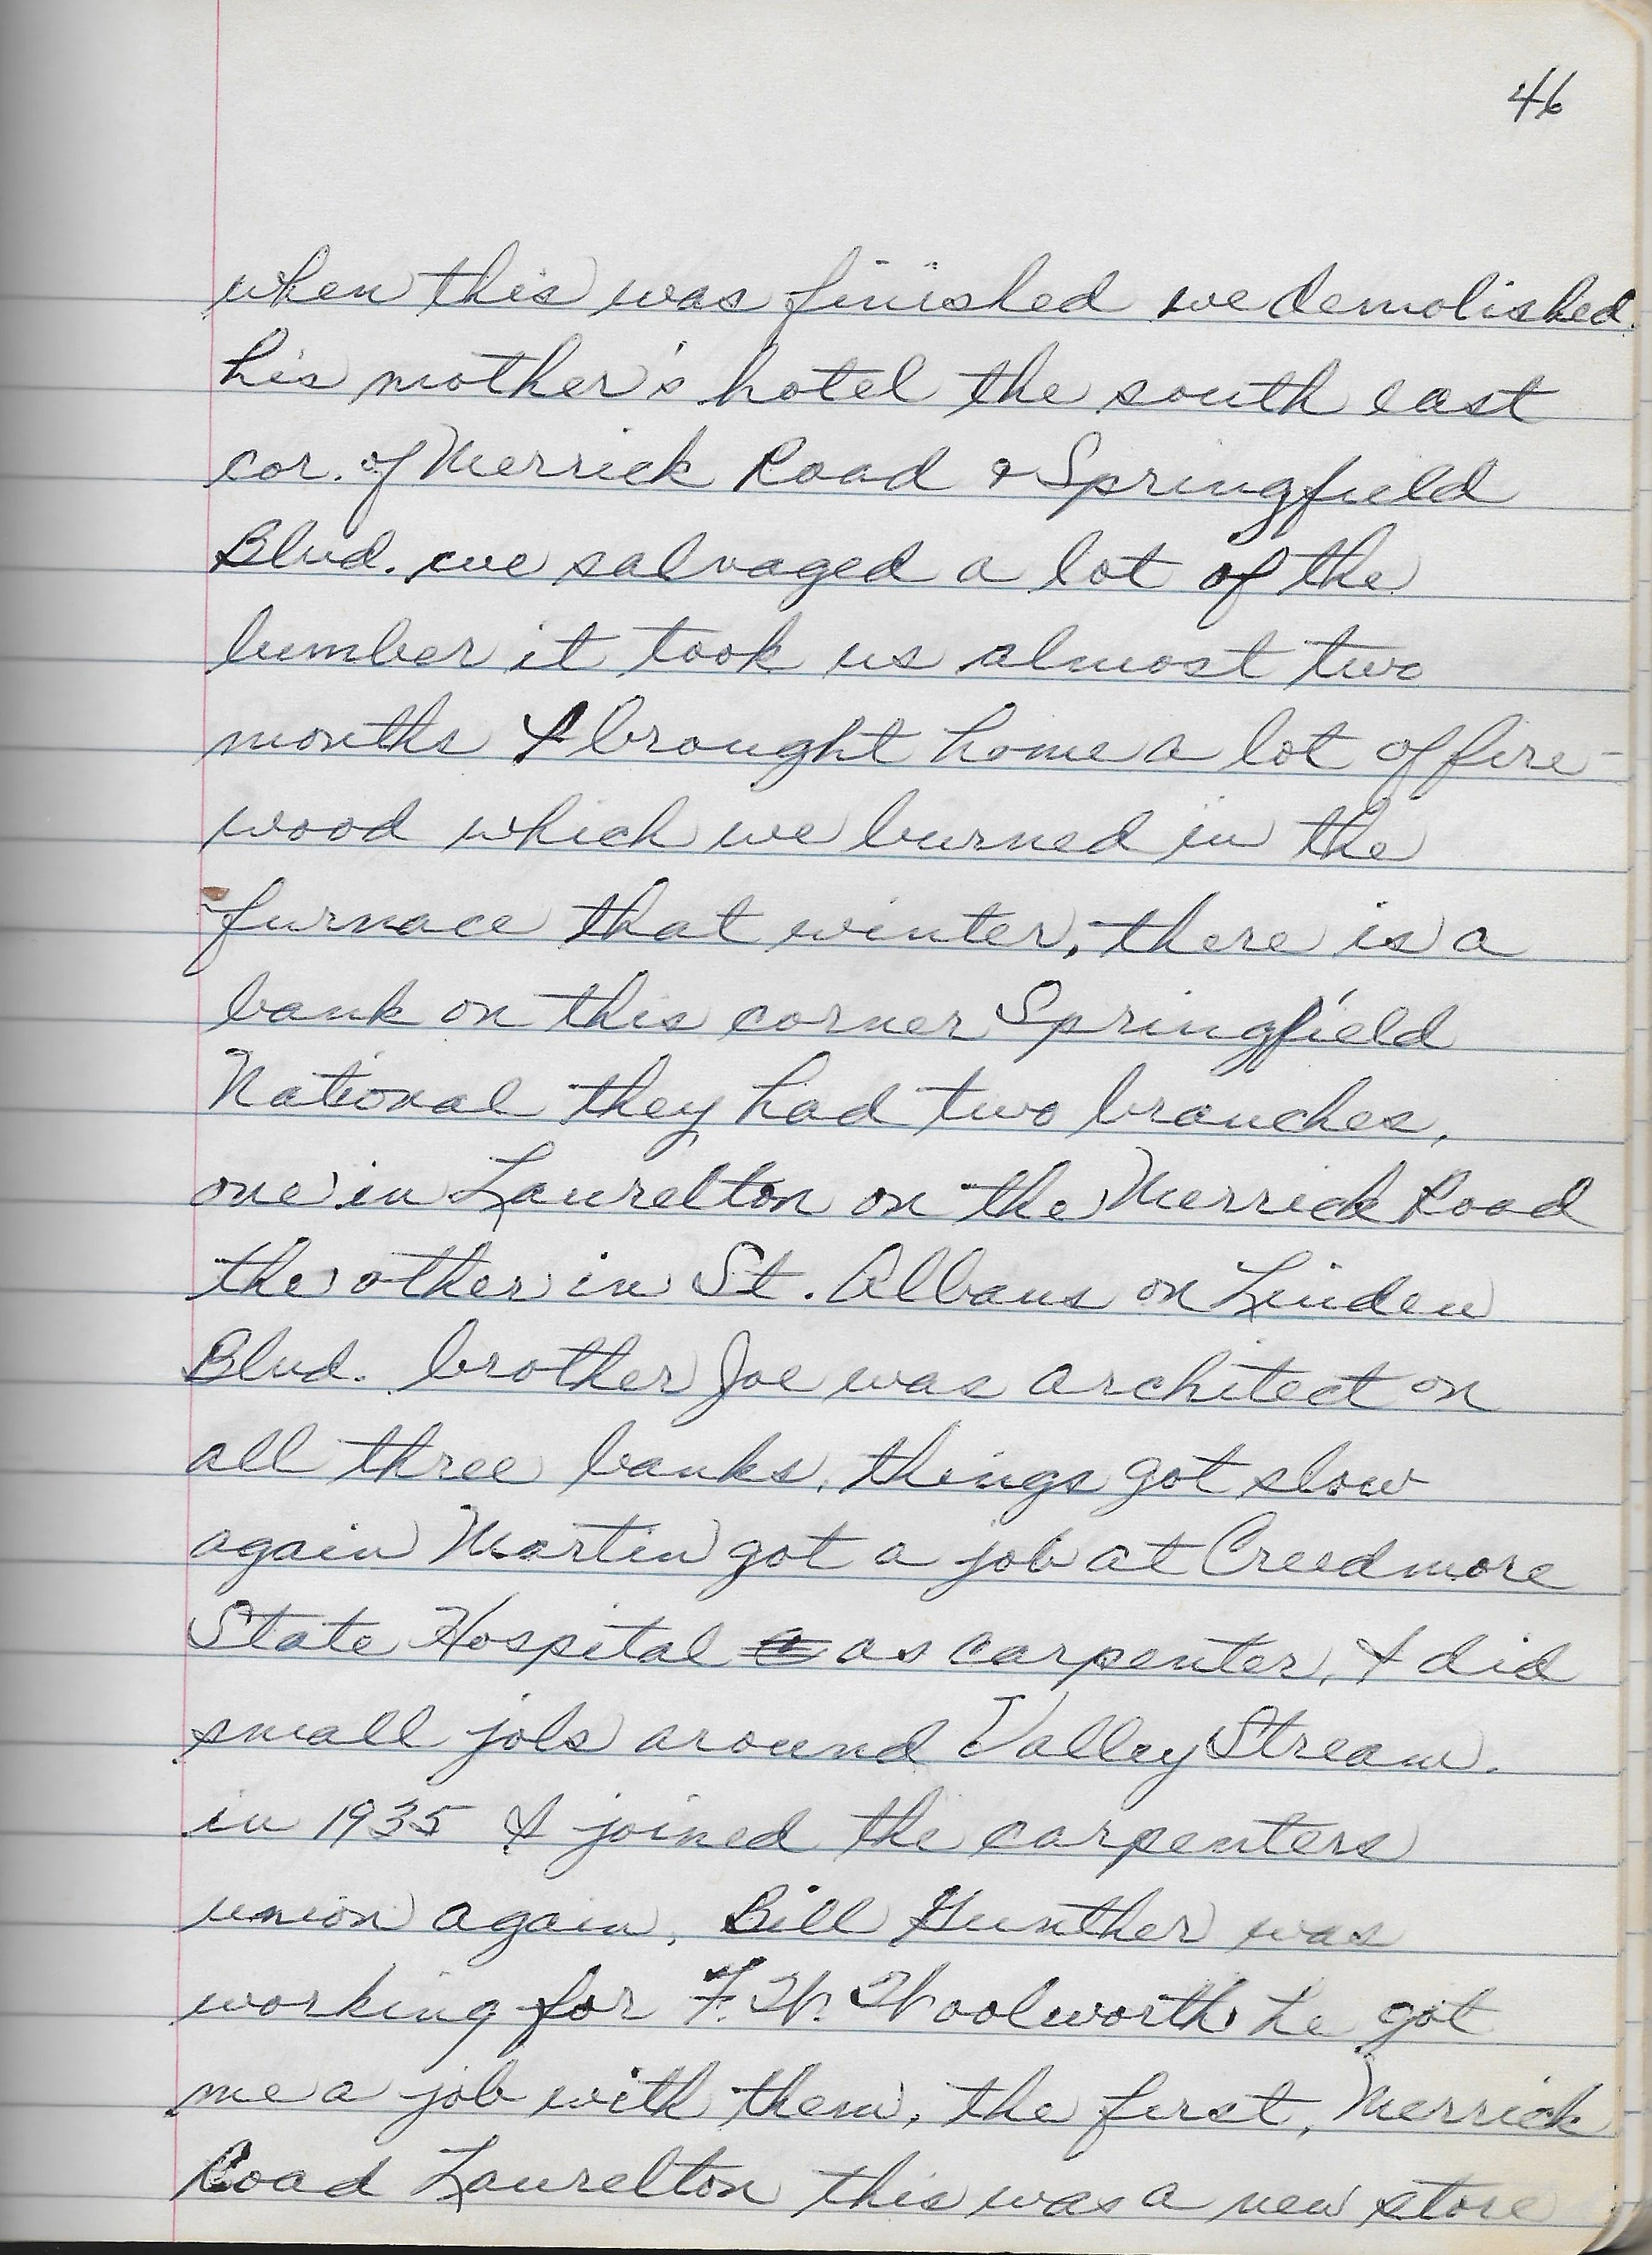 46
when this was finished we demolished
his mother's hotel the south east
cor. of Merrick Road & Springfield
Blvd. we salvaged a lot of the
lumber it took us almost two
months I brought home a lot of fire-
wood which we burned in the
furnace that winter, there is a
bank on this corner Springfield
National they had two branches,
one in Laurelton on the Merrick Road
the other in St. Albans on Linden
Blvd. brother Joe was architect on
all three banks, things got slow
again Martin got a job at Creedmore
State Hospital as carpenter, I did
small jobs around Valley Stream.
in 1935 I joined the carpenters
union again, Bill Gunther was
working for F. W. Woolworth he got
me a job with them, the first, Merrick
Road Laurelton this was a new store